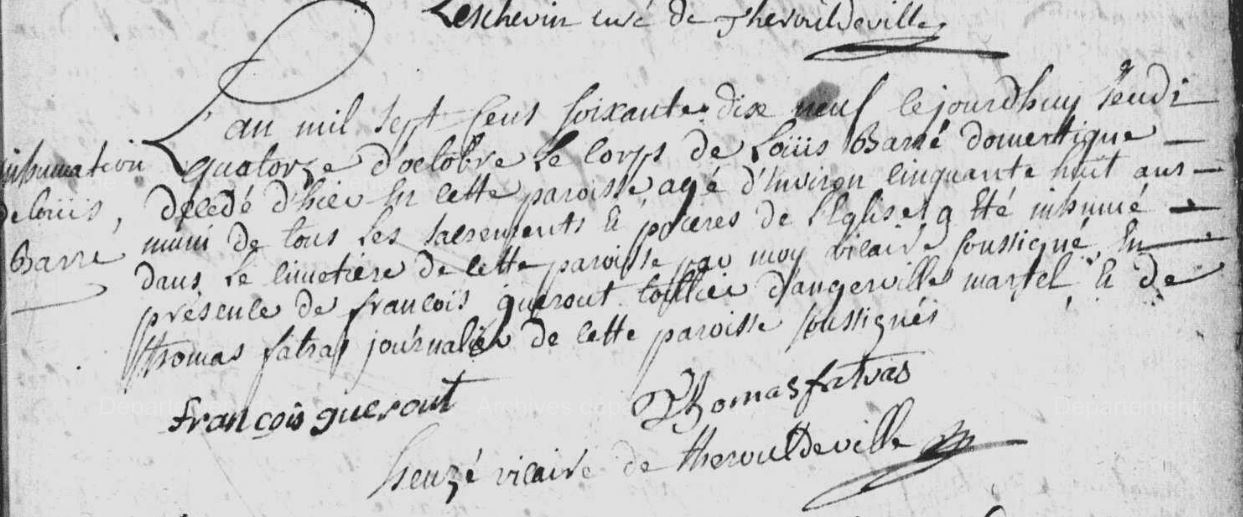 Leschevin curé de Therouldeville
L'an mil sept cens soixante dix neuf le jourdhuy Jeudi
inhumation
de loüis
Barré
quatorze d'octobre le corps de Loüis Barré domestique
décédé d'hier en cette paroisse agé d'environ cinquante huit ans
muni de tous les sacrements & prieres de l'Eglise, a été inhumé
dans le cimetiére de cette paroisse par moy vicaire soussigné En
présence de françois guerout d'angerville martel & de
thomas fatras journalier de cette paroisse soussignés
françois guerout
Thomas fatras
heuzé vicaire de therouldeville